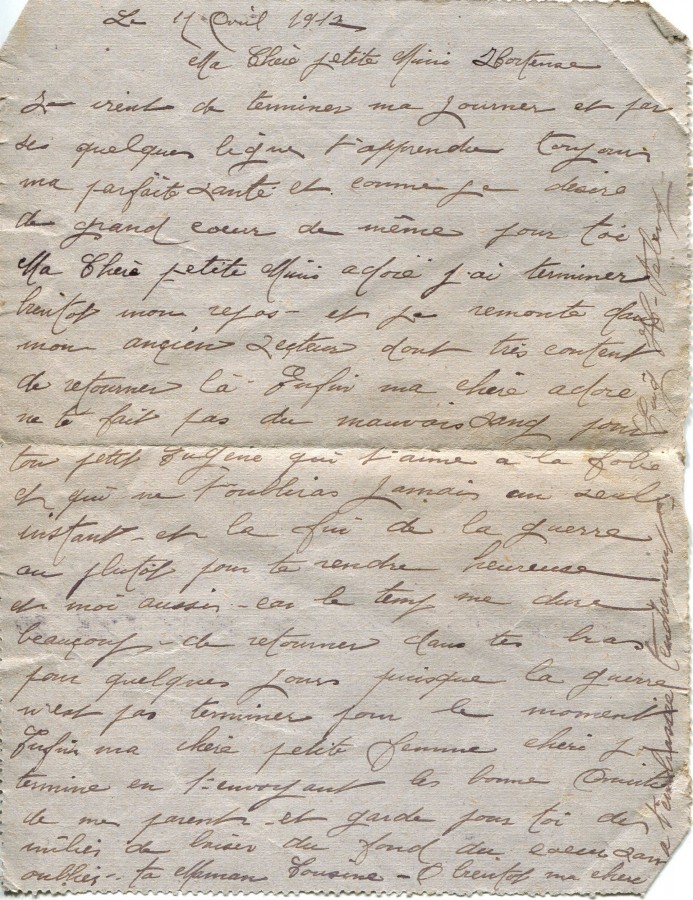 Le 11 Avril 1917
Ma Chère petite Mimi Hortense
Je vient de terminer ma journer et par
ses quelques ligne t'apprendre toujours
ma parfaite santé et comme je désire
de grand coeur de même pour toi
Ma Chère petite Mimi adoré j'ai terminer
bientot mon repas - et je remonte dans
mon ancien secteur dont très content
de retourner là - Enfin ma chère adore
ne te fait pas du mauvais sang pour
ton petit Eugène qui t'aime a la folie
et qui ne t'oublieras jamais un seul
instant - et la fin de la guerre
au plutot pour te rendre heureuse
et moi aussi - car le temp me dure
beaucoup - de retourner dans tes bras
pour quelques jours puisque la guerre
n'est pas terminer pour le moment
Enfin ma chère petite femme cheri je
termine en t'envoyant les bonne Amitié
de me parent - et garde pour toi des
milies de baiser du fond du coeur sans
oublier - ta Maman Cousine - A bientot ma chère
t'embrasse tendrement